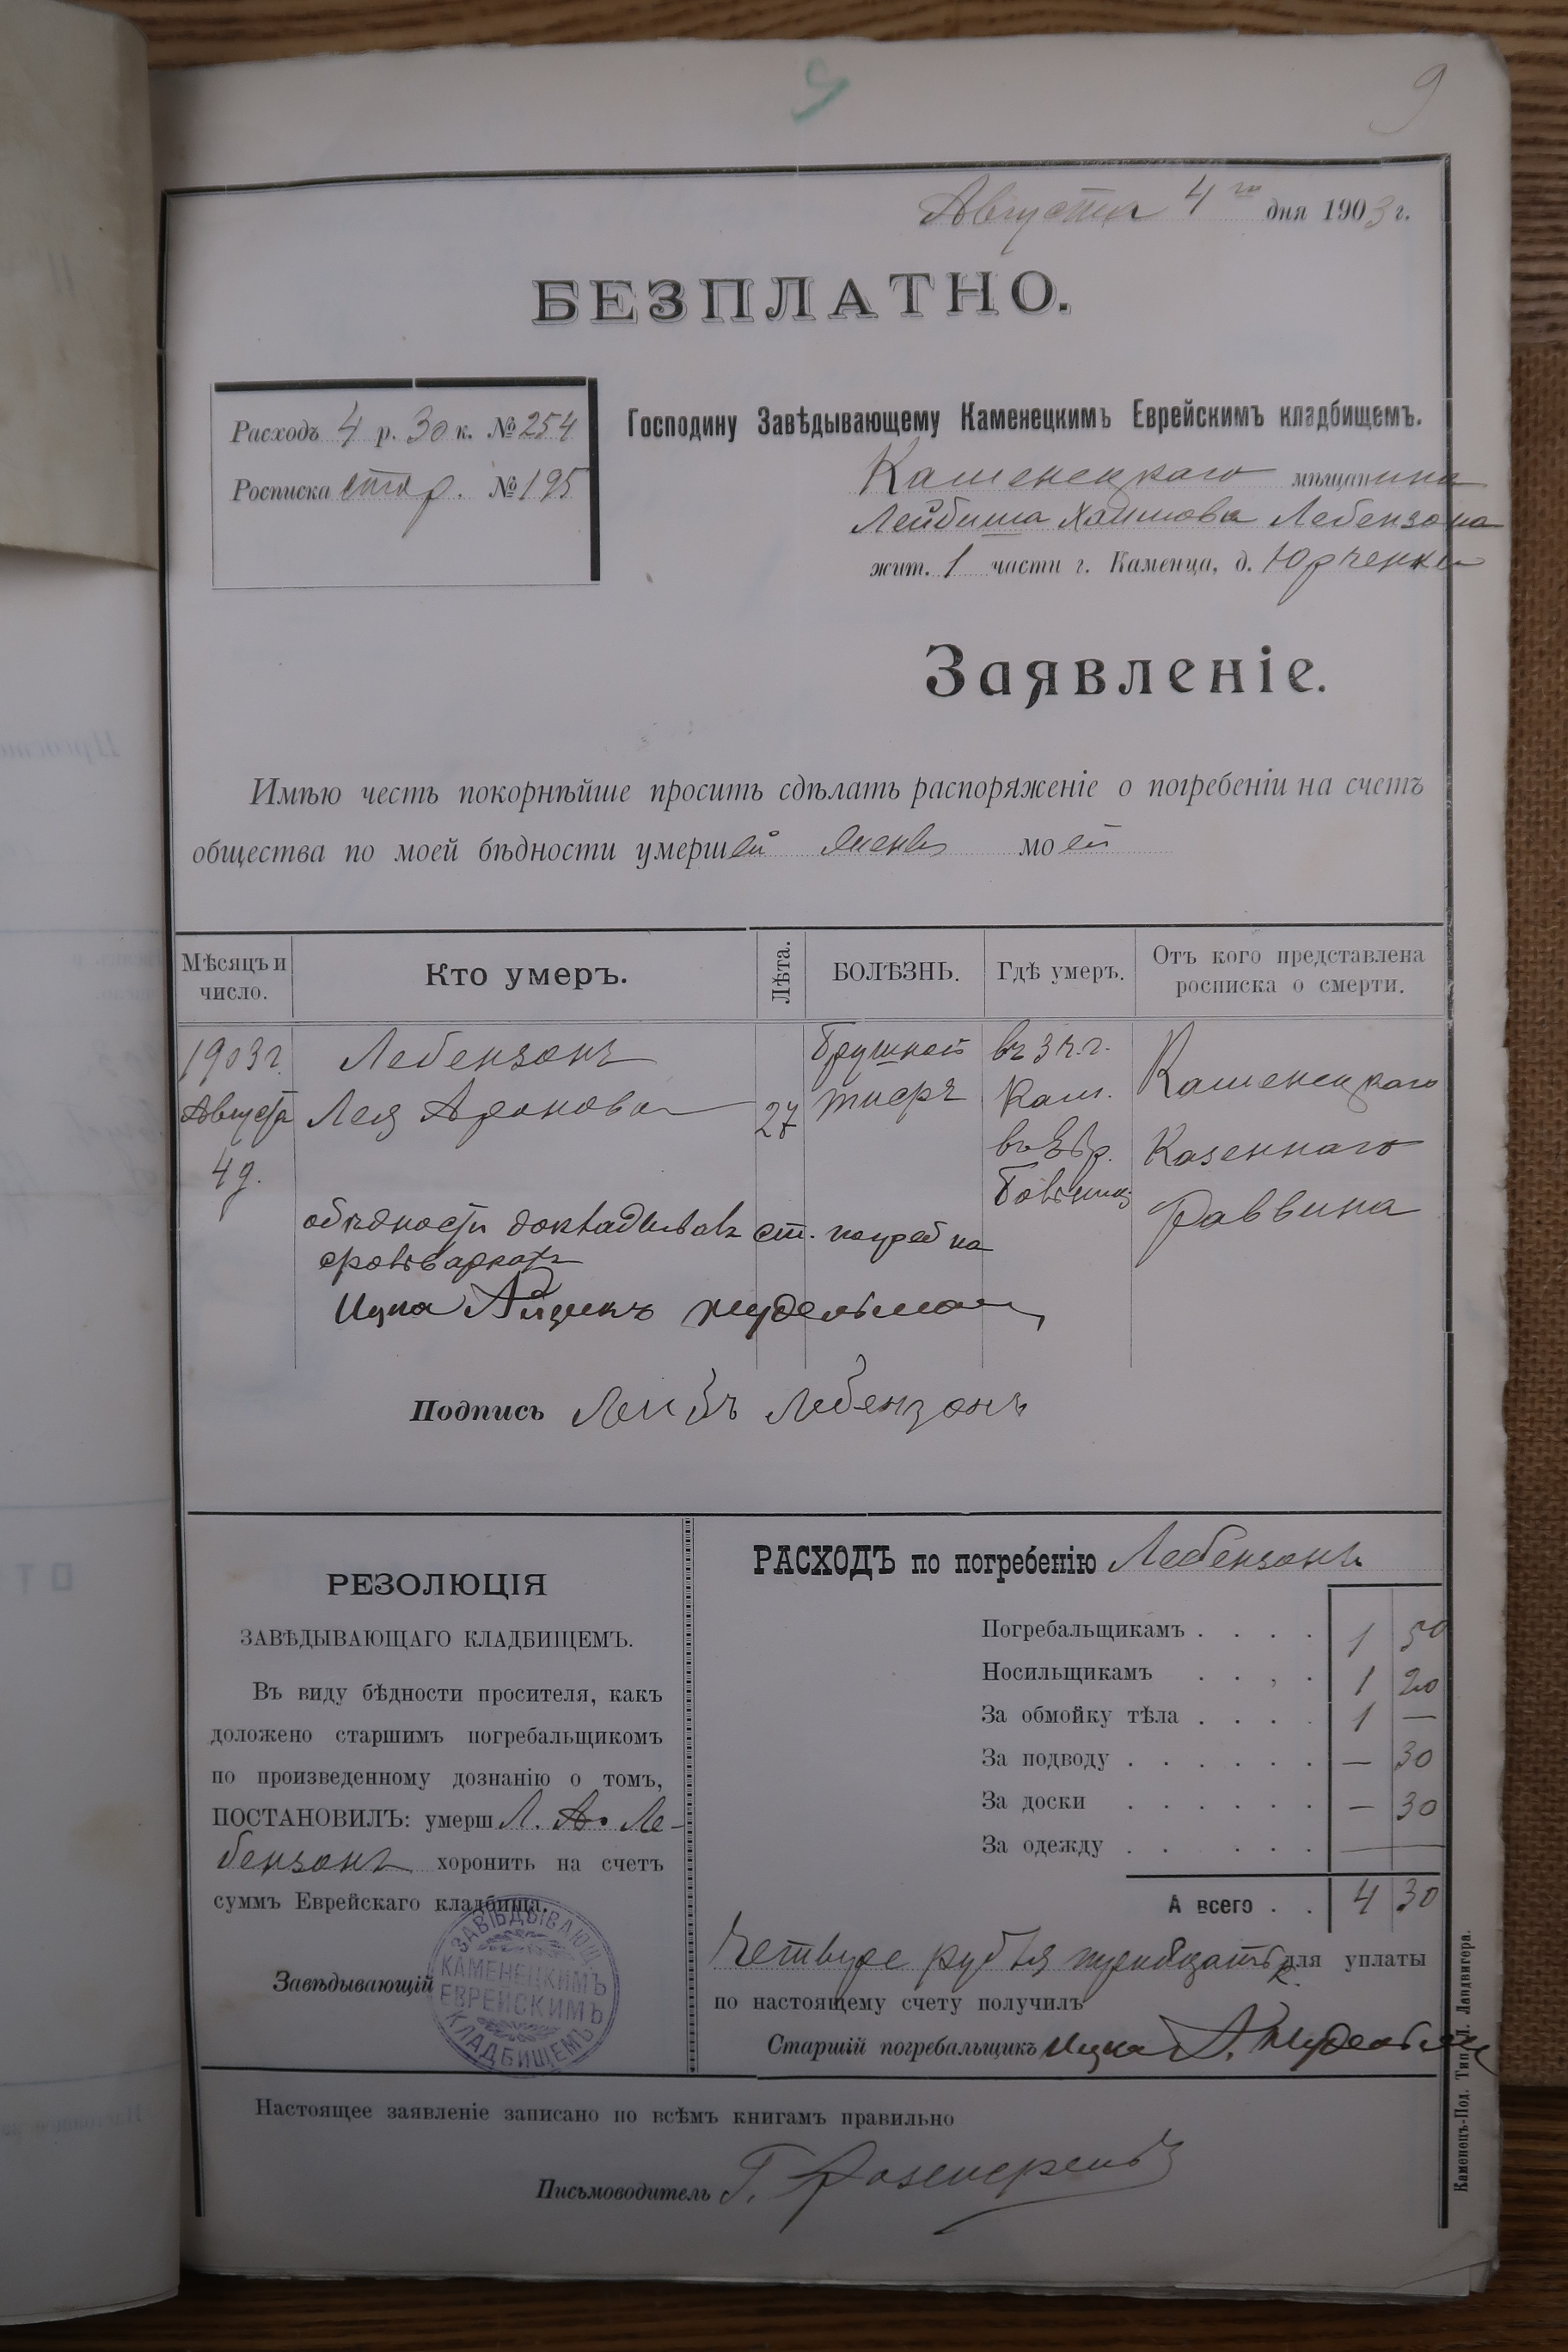 9
9
Августа 4го дня 1903 г.
БЕЗПЛАТНО.
Расходъ 4 р. 30 к. № 254
Росписка стар. № 195
Господину Завѣдывающему Каменецкимъ Еврейскимъ кладбищемъ.
Каменецкаго мѣщанина
Лейбиша Хаимова Лебензона
жит. 1 части г. Каменца, д. Юрченки
Заявленіе.
Имѣю честь покорнѣйше просить сдѣлать распоряженіе о погребеніи на счетъ
общества по моей бѣдности умершей жены моей
Мѣсяцъ и число.
Кто умеръ.
Лѣта.
БОЛѢЗНЬ.
Гдѣ умеръ.
Отъ кого представлена росписка о смерти.
1903 г. Августа 4 д.
Лебензонъ
Лея Аронова
27
брушной
тифъ
въ 3 ч. г.
Кам.
въ Евр.
больниц.
Каменецкаго
Казеннаго
Раввина
обѣдности докладывалъ ст. погребна
Ицко Айзикъ Нудельман
Подпись Лейбъ Лебензонъ
РЕЗОЛЮЦІЯ
ЗАВѢДЫВАЮЩАГО КЛАДБИЩЕМЪ.
Въ виду бѣдности просителя, какъ
доложено старшимъ погребальщикомъ
по произведенному дознанію о томъ,
ПОСТАНОВИЛЪ: умерш Л. А. Ле-
бензонъ хоронить на счетъ
суммъ Еврейскаго кладбища.
Завѣдывающій
ЗАВѢДЫВАЮЩ.
КАМЕНЕЦКИМЪ
ЕВРЕЙСКИМЪ
КЛАДБИЩЕМЪ
РАСХОДЪ по погребенію Лебензонъ
Погребальщикамъ . . . . 1 50
Носильщикамъ . . . . 1 20
За обмойку тѣла . . . . 1 —
За подводу . . . . . . — 30
За доски . . . . . . — 30
За одежду . . . . . . —
А всего . . 4 30
Четыре рубля тридцать к. для уплаты
по настоящему счету получилъ
Старшій погребальщикъ Ицко А. Нудельман
Настоящее заявленіе записано по всѣмъ книгамъ правильно
Письмоводитель Г.
Каменецъ-Под. Тип. Л. Ландвигера.